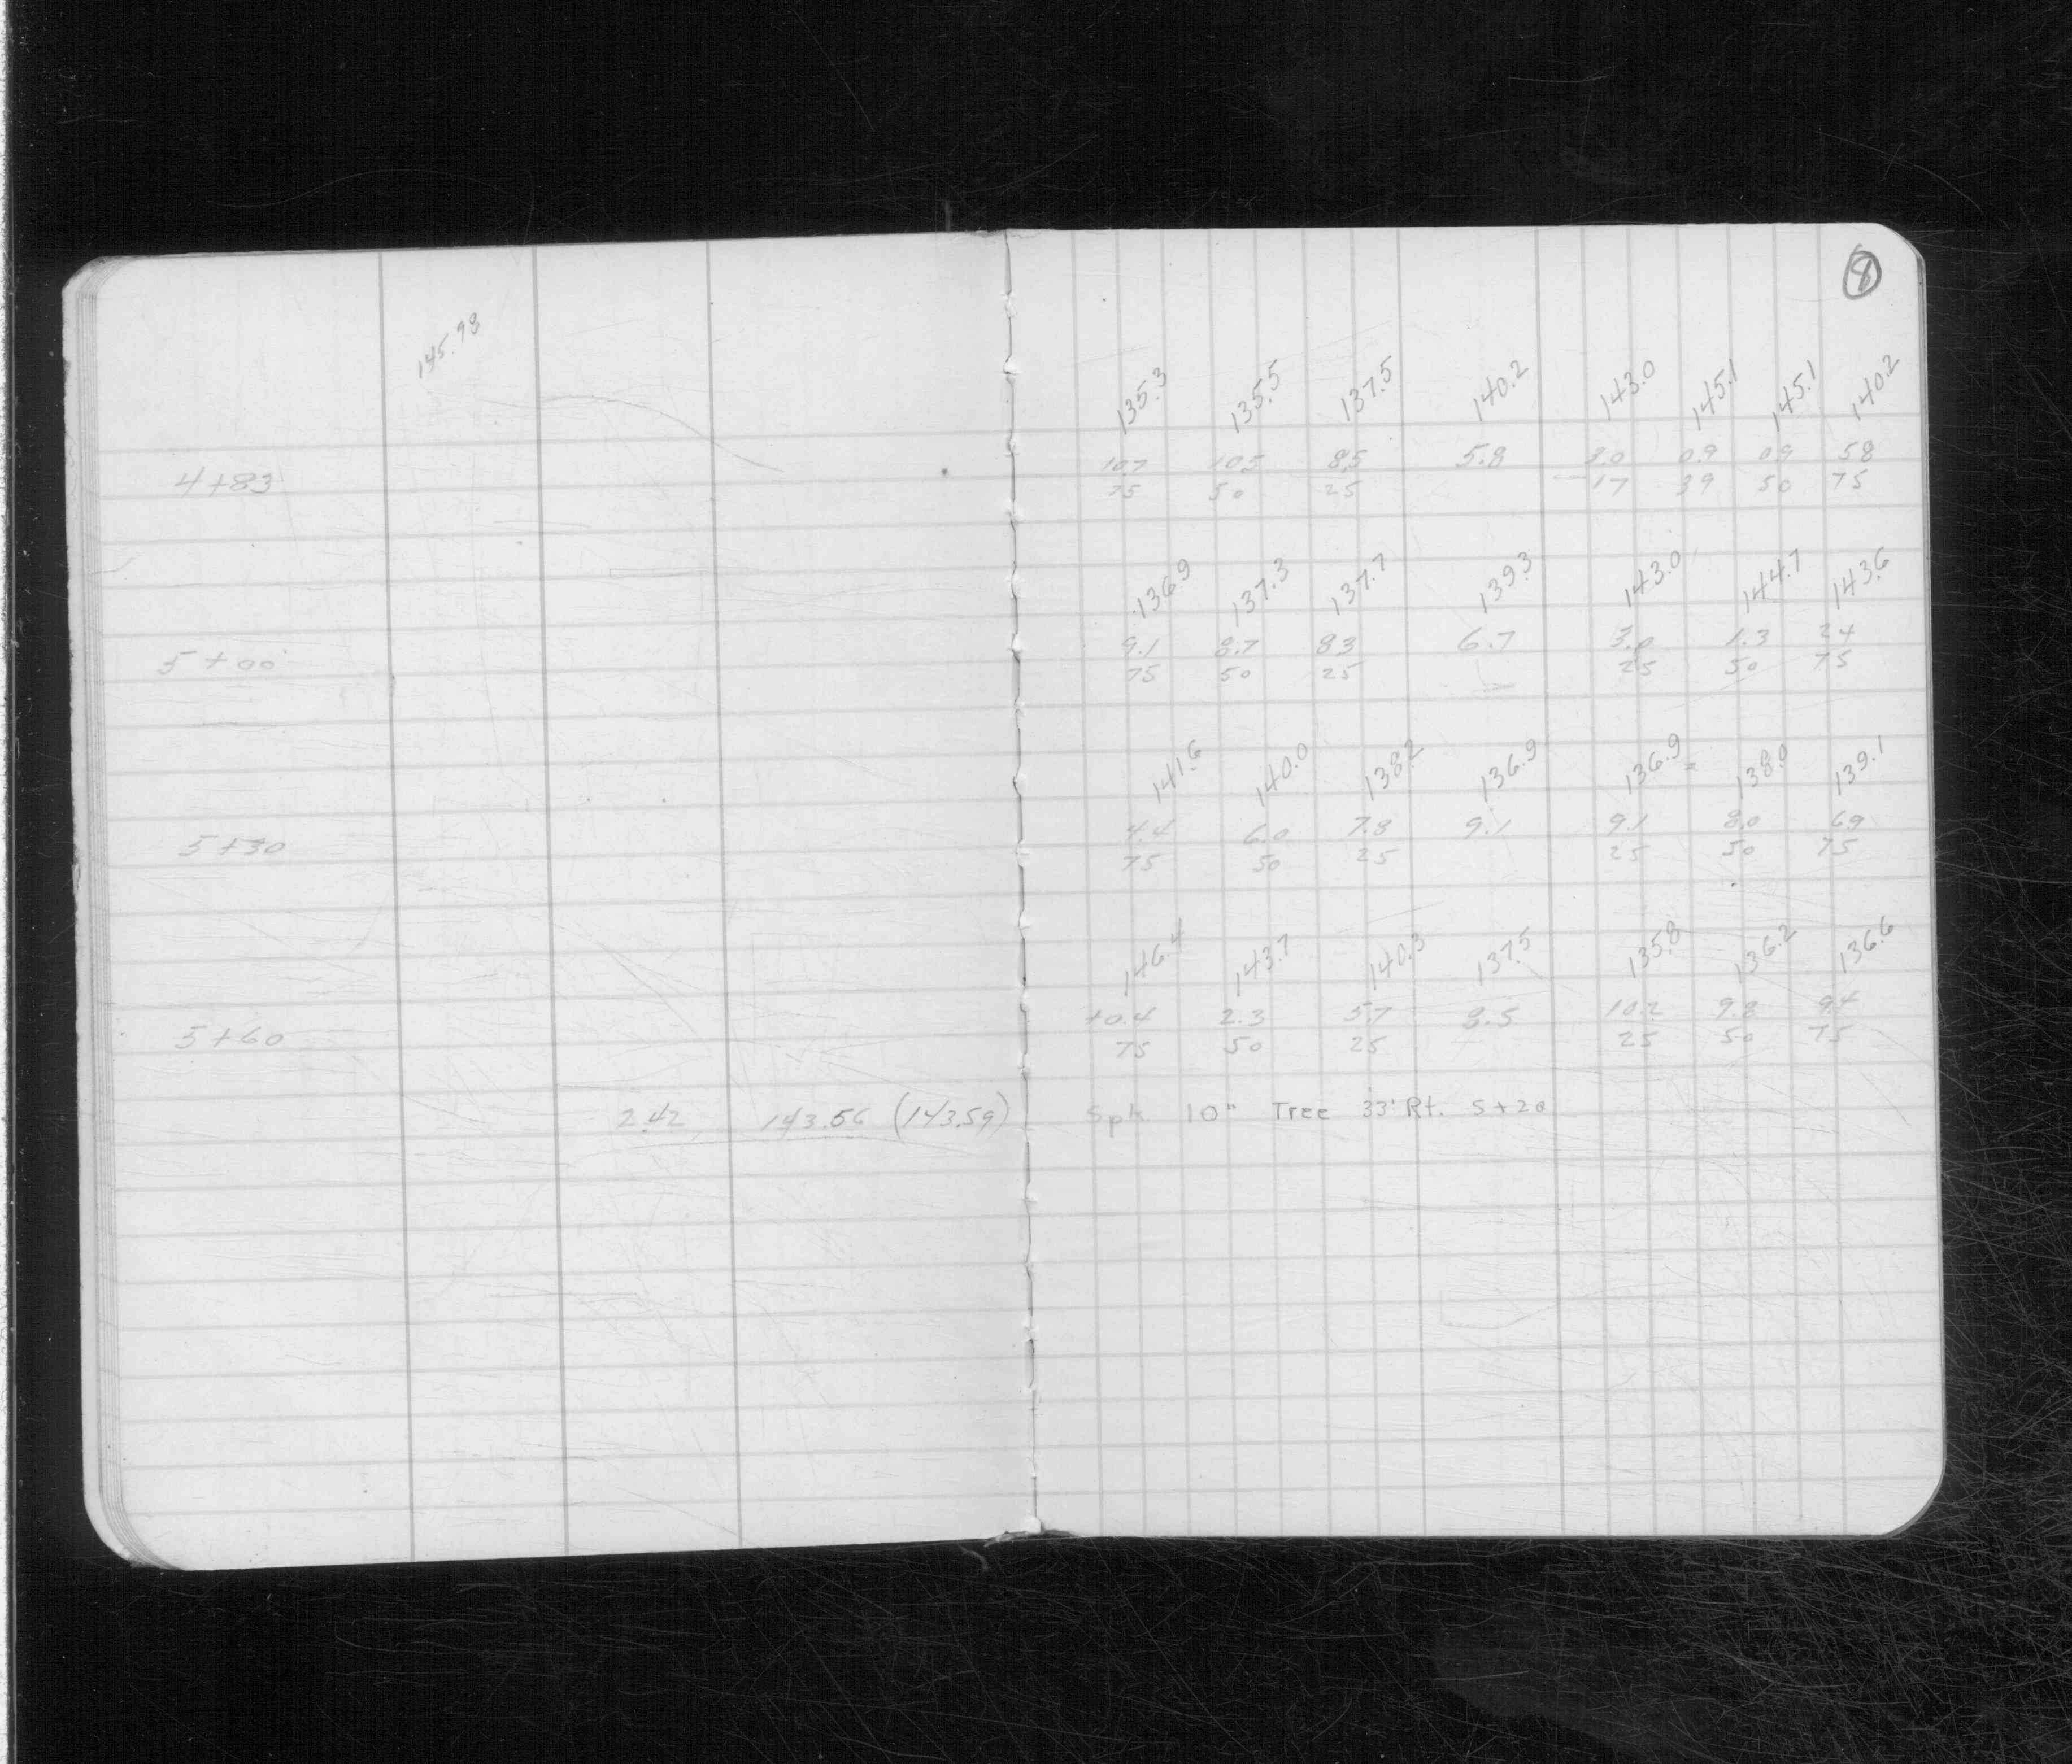 8
145.98
135.3 135.5 137.5 140.2 143.0 145.1 145.1 140.2
4+83 10.7 10.5 8.5 5.8 3.0 0.9 0.9 5.8
75 50 25 17 39 50 75
136.9 137.3 137.7 139.3 143.0 144.7 143.6
5+00 9.1 8.7 8.3 6.7 3.0 1.3 2.4
75 50 25 25 50 75
141.6 140.0 138.2 136.9 136.9 138.0 139.1
5+30 4.4 6.0 7.8 9.1 9.1 8.0 6.9
75 50 25 25 50 75
146.4 143.7 140.3 137.5 135.8 136.2 136.6
5+60 +0.4 2.3 5.7 8.5 10.2 9.8 9.4
75 50 25 25 50 75
2.42 143.56 (143.59) Spk. 10" Tree 33' Rt. 5+20